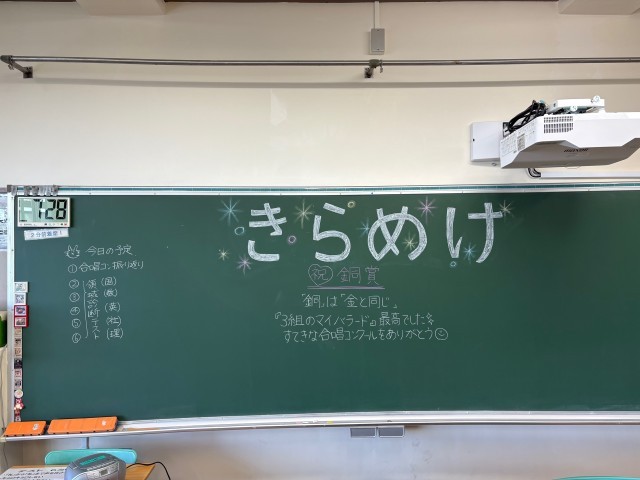 7:28
2分前集合!
今日の予定
①合唱コン振り返り
② (国)
③ (数)
④ (英)
⑤ (社)
⑥ (理)
領域診断テスト
きらめけ
祝 銅賞
「銅」は「金と同じ」
『3組のマイバラード』最高でした
すてきな合唱コンクールをありがとう